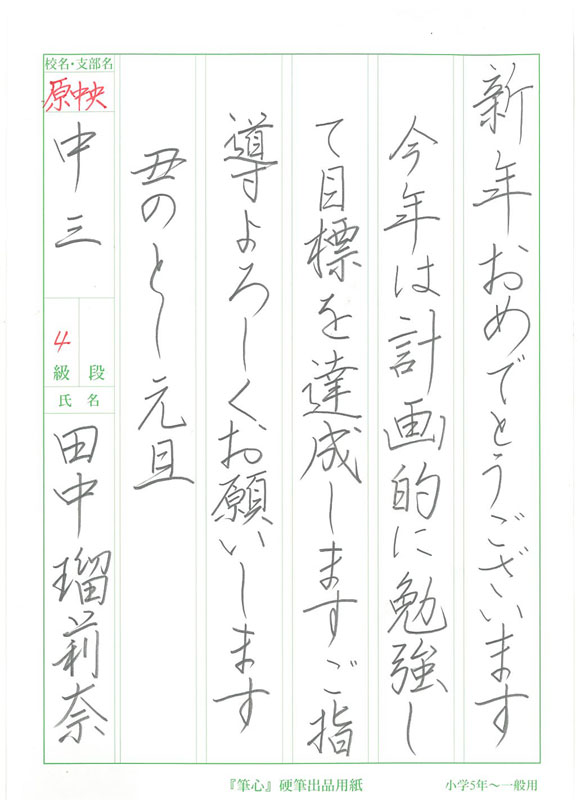 新年おめでとうございます
今年は計画的に勉強し
て目標を達成しますご指
導よろしくお願いします
丑のとし元旦
校名・支部名
原中央
中三
4
級 段
氏名
田中瑠莉奈
『筆心』硬筆出品用紙
小学5年〜一般用